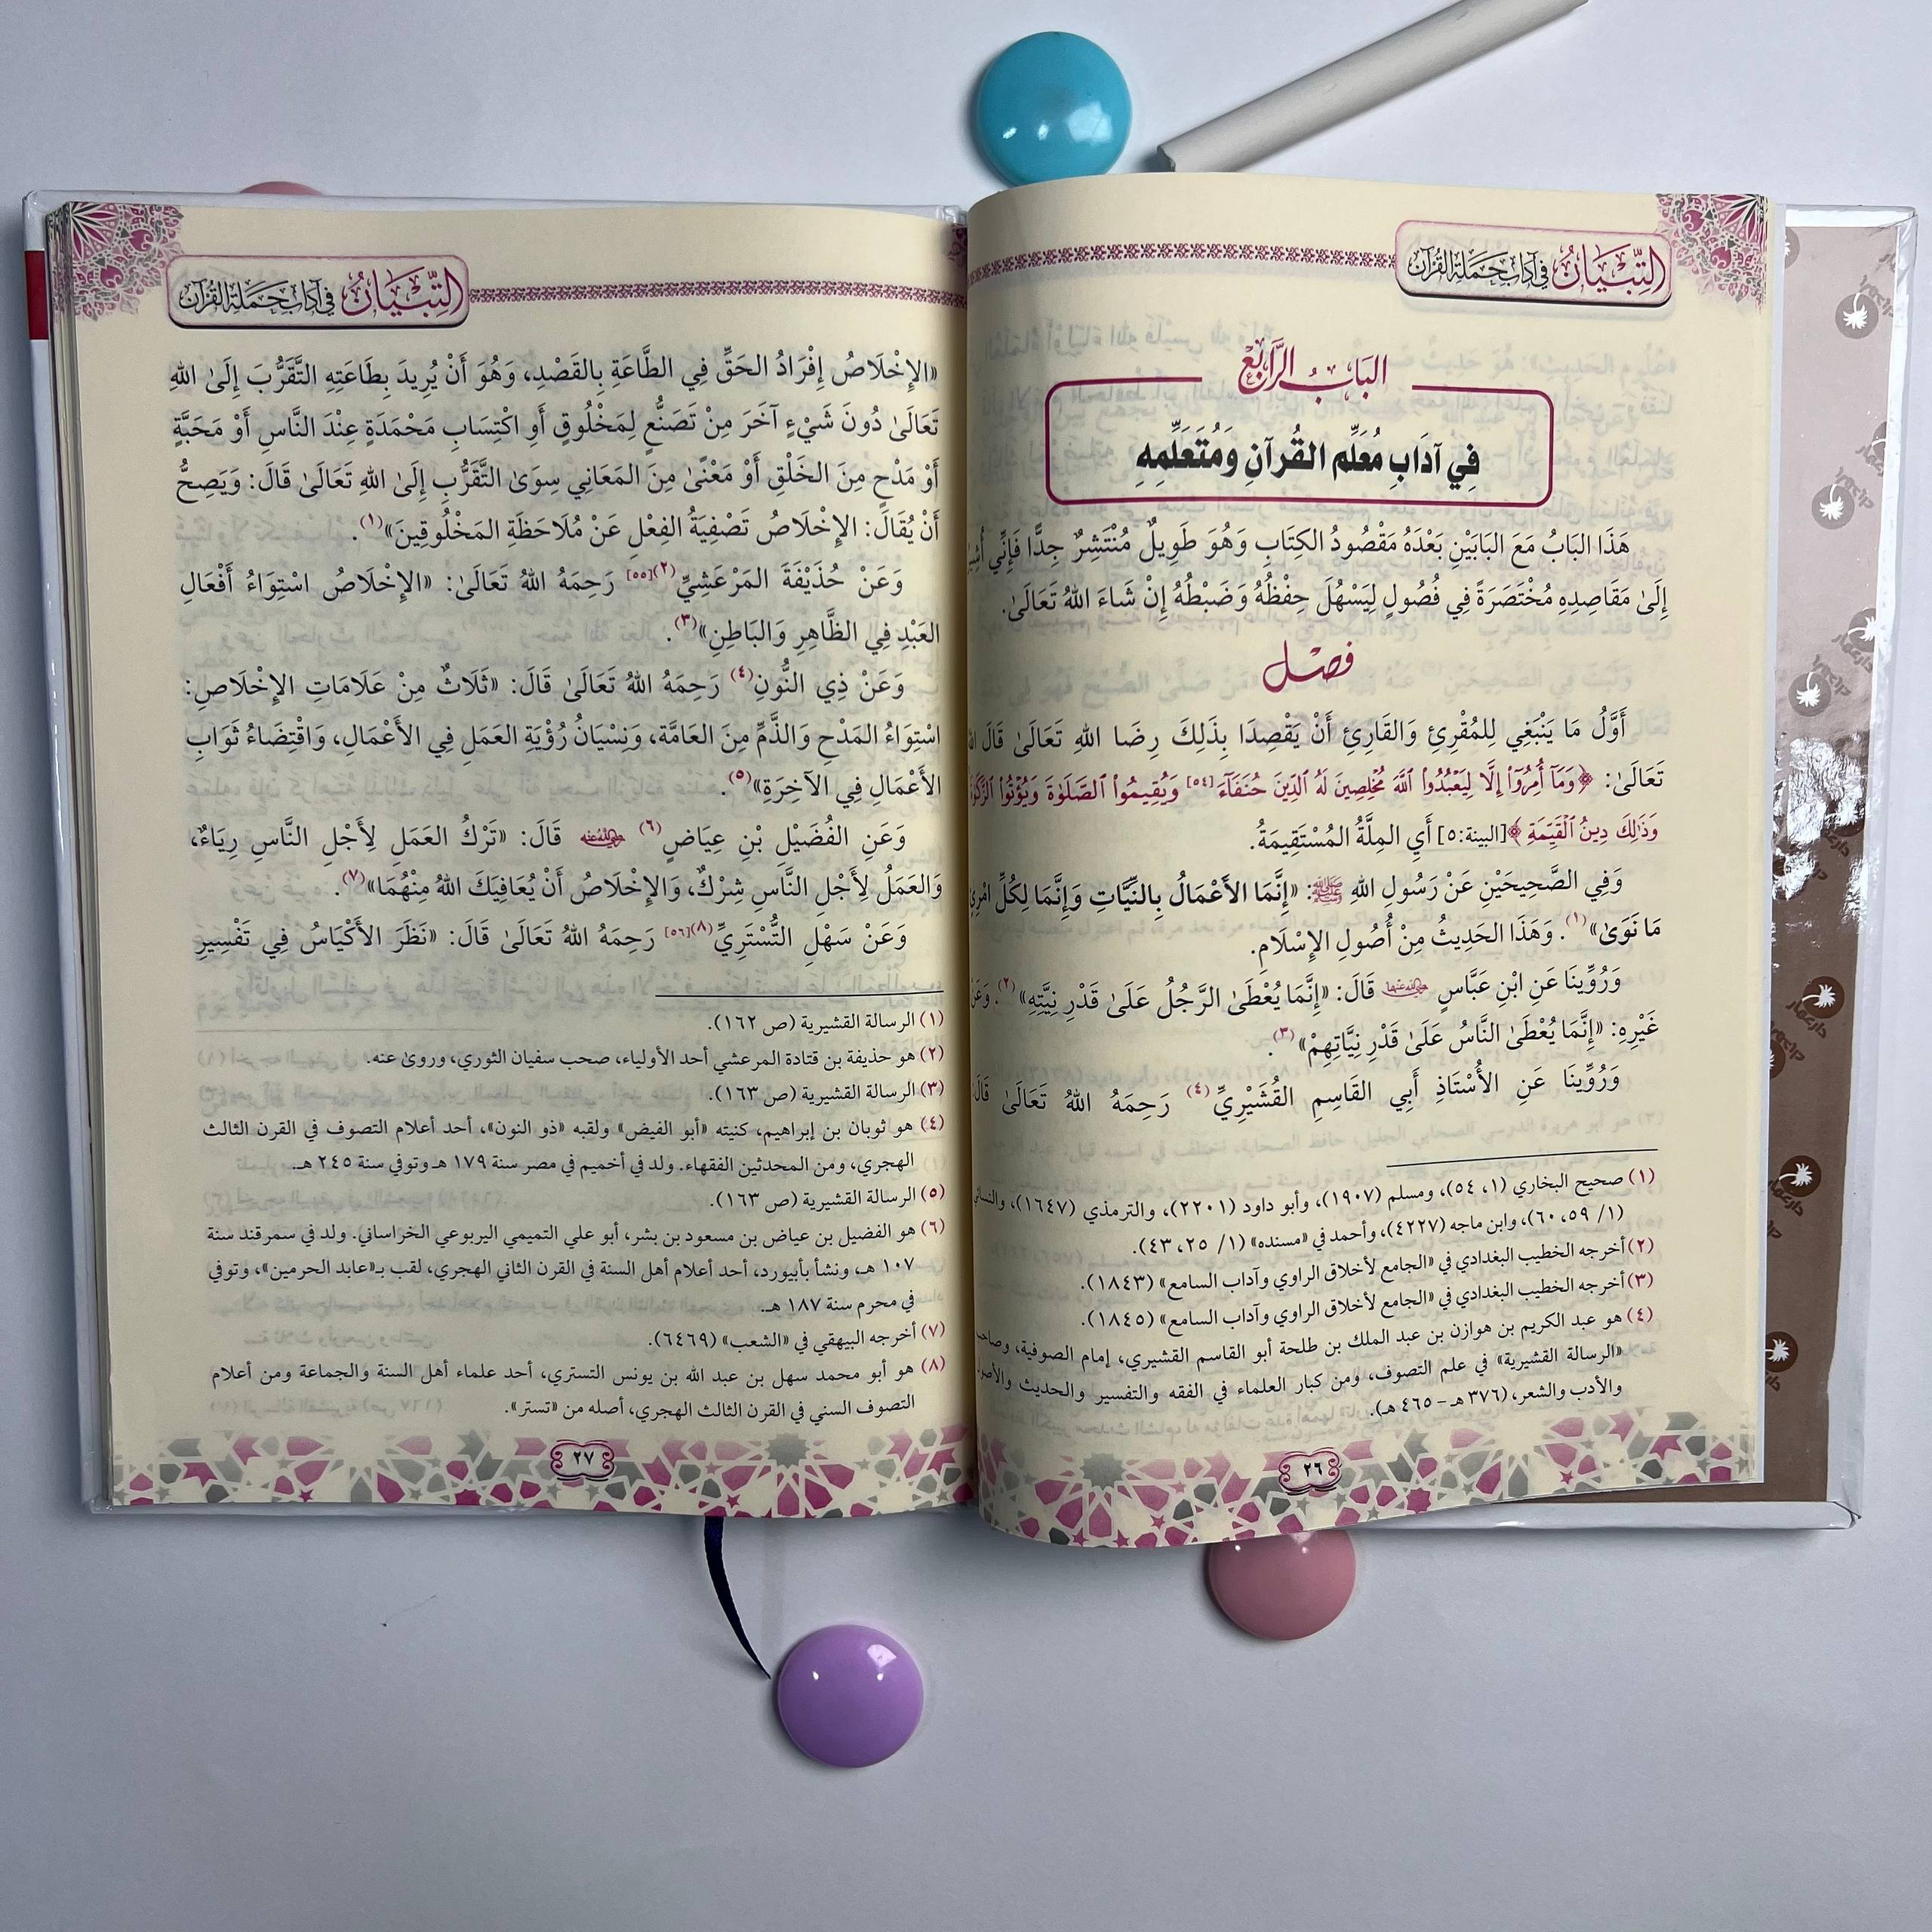 التِّبْيَانُ فِي آدَابِ حَمَلَةِ القُرْآنِ
البَابُ الرَّابِعُ
فِي آدَابِ مُعَلِّمِ القُرآنِ وَمُتَعَلِّمِهِ
هَذَا البَابُ مَعَ البَابَيْنِ بَعْدَهُ مَقْصُودُ الكِتَابِ وَهُوَ طَوِيلٌ مُنْتَشِرٌ جِدًّا فَإِنِّي
إِلَىٰ مَقَاصِدِهِ مُخْتَصَرَةً فِي فُصُولٍ لِيَسْهُلَ حِفْظُهُ وَضَبْطُهُ إِنْ شَاءَ اللهُ تَعَالَىٰ.
فصل
أَوَّلُ مَا يَنْبَغِي لِلمُقْرِئِ وَالقَارِئِ أَنْ يَقْصِدَا بِذَلِكَ رِضَا اللهِ تَعَالَىٰ قَالَ
تَعَالَىٰ: ﴿وَمَآ أُمِرُوٓاْ إِلَّا لِيَعْبُدُواْ ٱللَّهَ مُخْلِصِينَ لَهُ ٱلدِّينَ حُنَفَآءَ[٥٤] وَيُقِيمُواْ ٱلصَّلَوٰةَ وَيُؤْتُواْ ٱلزَّكَوٰةَ
وَذَٰلِكَ دِينُ ٱلْقَيِّمَةِ﴾[البينة:٥] أَيِ المِلَّةُ المُسْتَقِيمَةُ.
وَفِي الصَّحِيحَيْنِ عَنْ رَسُولِ اللهِ ﷺ: «إِنَّمَا الأَعْمَالُ بِالنِّيَّاتِ وَإِنَّمَا لِكُلِّ امْرِئٍ
مَا نَوَىٰ»(١). وَهَذَا الحَدِيثُ مِنْ أُصُولِ الإِسْلَامِ.
وَرُوِّينَا عَنِ ابْنِ عَبَّاسٍ رضي الله عنهما قَالَ: «إِنَّمَا يُعْطَىٰ الرَّجُلُ عَلَىٰ قَدْرِ نِيَّتِهِ»(٢). وَعَنْ
غَيْرِهِ: «إِنَّمَا يُعْطَىٰ النَّاسُ عَلَىٰ قَدْرِ نِيَّاتِهِمْ»(٣).
وَرُوِّينَا عَنِ الأُسْتَاذِ أَبِي القَاسِمِ القُشَيْرِيِّ(٤) رَحِمَهُ اللهُ تَعَالَىٰ قَالَ:
(١) صحيح البخاري (١، ٥٤)، ومسلم (١٩٠٧)، وأبو داود (٢٢٠١)، والترمذي (١٦٤٧)، والنسائي
(١/ ٥٩، ٦٠)، وابن ماجه (٤٢٢٧)، وأحمد في «مسنده» (١/ ٢٥، ٤٣).
(٢) أخرجه الخطيب البغدادي في «الجامع لأخلاق الراوي وآداب السامع» (١٨٤٣).
(٣) أخرجه الخطيب البغدادي في «الجامع لأخلاق الراوي وآداب السامع» (١٨٤٥).
(٤) هو عبد الكريم بن هوازن بن عبد الملك بن طلحة أبو القاسم القشيري، إمام الصوفية، وصاحب
«الرسالة القشيرية» في علم التصوف، ومن كبار العلماء في الفقه والتفسير والحديث والأصول
والأدب والشعر، (٣٧٦ هـ – ٤٦٥ هـ).
٢٦
التِّبْيَانُ فِي آدَابِ حَمَلَةِ القُرْآنِ
«الإِخْلَاصُ إِفْرَادُ الحَقِّ فِي الطَّاعَةِ بِالقَصْدِ، وَهُوَ أَنْ يُرِيدَ بِطَاعَتِهِ التَّقَرُّبَ إِلَىٰ اللهِ
تَعَالَىٰ دُونَ شَيْءٍ آخَرَ مِنْ تَصَنُّعٍ لِمَخْلُوقٍ أَوِ اكْتِسَابِ مَحْمَدَةٍ عِنْدَ النَّاسِ أَوْ مَحَبَّةٍ
أَوْ مَدْحٍ مِنَ الخَلْقِ أَوْ مَعْنًى مِنَ المَعَانِي سِوَىٰ التَّقَرُّبِ إِلَىٰ اللهِ تَعَالَىٰ قَالَ: وَيَصِحُّ
أَنْ يُقَالَ: الإِخْلَاصُ تَصْفِيَةُ الفِعْلِ عَنْ مُلَاحَظَةِ المَخْلُوقِينَ»(١).
وَعَنْ حُذَيْفَةَ المَرْعَشِيِّ(٢)[٥٥] رَحِمَهُ اللهُ تَعَالَىٰ: «الإِخْلَاصُ اسْتِوَاءُ أَفْعَالِ
العَبْدِ فِي الظَّاهِرِ وَالبَاطِنِ»(٣).
وَعَنْ ذِي النُّونِ(٤) رَحِمَهُ اللهُ تَعَالَىٰ قَالَ: «ثَلَاثٌ مِنْ عَلَامَاتِ الإِخْلَاصِ:
اسْتِوَاءُ المَدْحِ وَالذَّمِّ مِنَ العَامَّةِ، وَنِسْيَانُ رُؤْيَةِ العَمَلِ فِي الأَعْمَالِ، وَاقْتِضَاءُ ثَوَابِ
الأَعْمَالِ فِي الآخِرَةِ»(٥).
وَعَنِ الفُضَيْلِ بْنِ عِيَاضٍ(٦) رضي الله عنه قَالَ: «تَرْكُ العَمَلِ لِأَجْلِ النَّاسِ رِيَاءٌ،
وَالعَمَلُ لِأَجْلِ النَّاسِ شِرْكٌ، وَالإِخْلَاصُ أَنْ يُعَافِيَكَ اللهُ مِنْهُمَا»(٧).
وَعَنْ سَهْلِ التُّسْتَرِيِّ(٨)[٥٦] رَحِمَهُ اللهُ تَعَالَىٰ قَالَ: «نَظَرَ الأَكْيَاسُ فِي تَفْسِيرِ
(١) الرسالة القشيرية (ص ١٦٢).
(٢) هو حذيفة بن قتادة المرعشي أحد الأولياء، صحب سفيان الثوري، وروىٰ عنه.
(٣) الرسالة القشيرية (ص ١٦٣).
(٤) هو ثوبان بن إبراهيم، كنيته «أبو الفيض» ولقبه «ذو النون»، أحد أعلام التصوف في القرن الثالث
الهجري، ومن المحدثين الفقهاء. ولد في أخميم في مصر سنة ١٧٩ هـ وتوفي سنة ٢٤٥ هـ.
(٥) الرسالة القشيرية (ص ١٦٣).
(٦) هو الفضيل بن عياض بن مسعود بن بشر، أبو علي التميمي اليربوعي الخراساني. ولد في سمرقند سنة
١٠٧ هـ، ونشأ بأبيورد، أحد أعلام أهل السنة في القرن الثاني الهجري، لقب بـ«عابد الحرمين»، وتوفي
في محرم سنة ١٨٧ هـ.
(٧) أخرجه البيهقي في «الشعب» (٦٤٦٩).
(٨) هو أبو محمد سهل بن عبد الله بن يونس التستري، أحد علماء أهل السنة والجماعة ومن أعلام
التصوف السني في القرن الثالث الهجري، أصله من «تستر».
٢٧